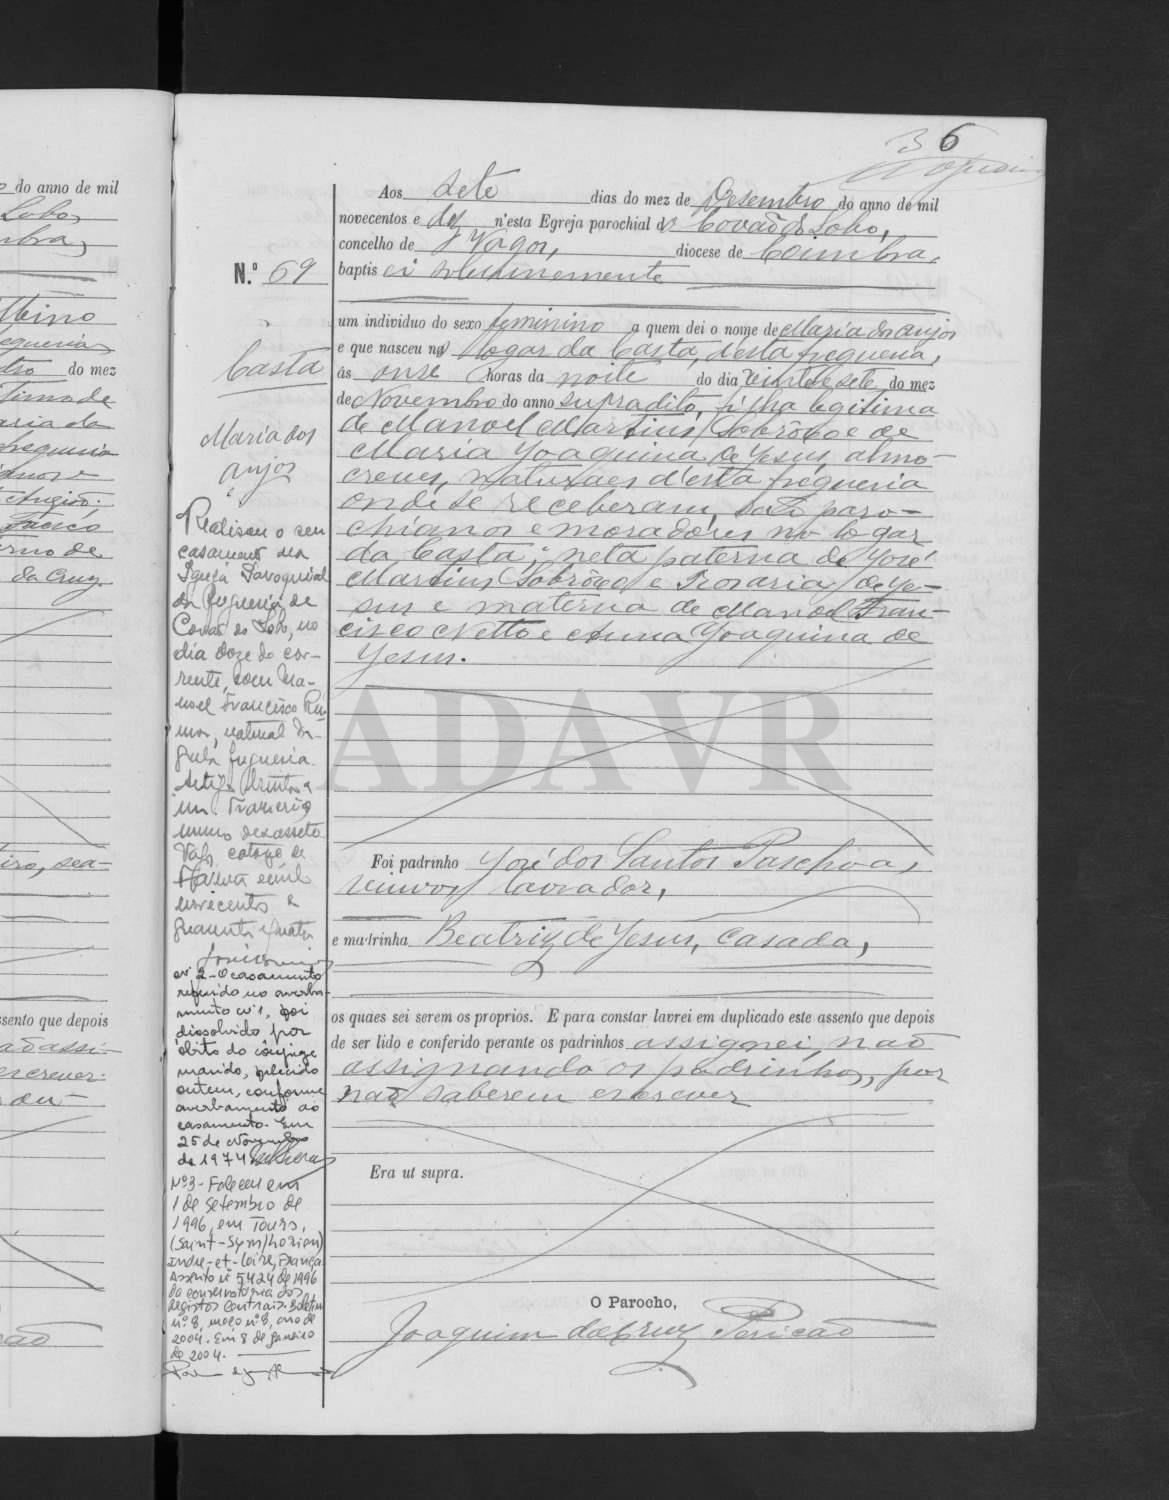 36
do anno de mil
Lobo,
do mez
da Cruz.
ssento que depois
escrever.
N.º 69
Casta
Maria dos
Anjos
Realisou o seu
casamento na
Igreja Paroquial
da freguesia de
Covão do Lobo, no
dia doze do cor-
rente, com Ma-
noel Francisco
natural da-
quela freguesia.
um.
numero dezassete
Vagos, catorze de
e mil
novecentos e
quarenta e quatro
Nº 2 - O casamento
referido no averba-
mento nº 1, foi
dissolvido por
óbito do cônjuge
marido, falecido
ontem, conforme
averbamento ao
casamento. Em
25 de Novembro
de 1974
Nº 3 - Faleceu em
1 de Setembro de
1996, em Tours,
(Saint-Symphorien)
Indre-et-Loire, França.
Assento nº 5424 de 1996
da conservatória dos
Registos Centrais. Boletim
nº 8, maço nº 8, ano de
2004. Em 8 de Janeiro
de 2004.
Aos sete dias do mez de Desembro do anno de mil
novecentos e dez, n'esta Egreja parochial de Covão do Lobo,
concelho de Vagos, diocese de Coimbra,
baptisei solemnemente
um individuo do sexo feminino a quem dei o nome de Maria dos Anjos
e que nasceu no logar da Casta, d'esta freguesia,
ás onse horas da noite do dia vinte e sete do mez
de Novembro do anno supradito, filha legitima
de Manoel Martins Sobrôco e de
Maria Joaquina de Jesus, almo-
creves, naturaes d'esta freguesia
onde se receberam, são paro-
chianos e moradores no logar
da Casta; neta paterna de José
Martins Sobrôco e Rosaria de Je-
sus e materna de Manoel Fran-
cisco Netto e Anna Joaquina de
Jesus.
ADAVR
Foi padrinho José dos Santos Paschoa,
viuvo, lavrador,
e madrinha Beatriz de Jesus, casada,
os quaes sei serem os proprios. E para constar lavrei em duplicado este assento que depois
de ser lido e conferido perante os padrinhos assignei, não
assignando os padrinhos, por
não saberem escrever
Era ut supra.
O Parocho,
Joaquim da Cruz Pericão